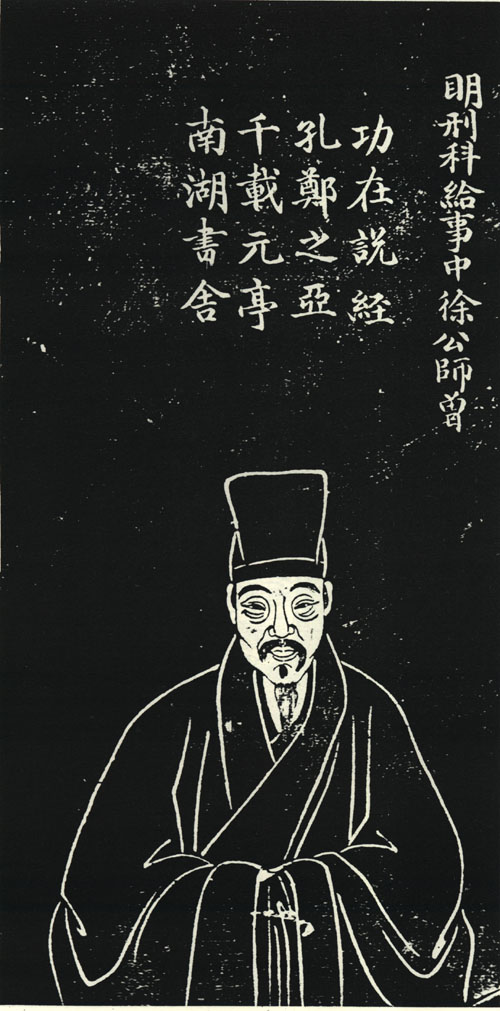 明刑科給事中徐公師曾
功在説經
孔鄭之亞
千載元亭
南湖書舎